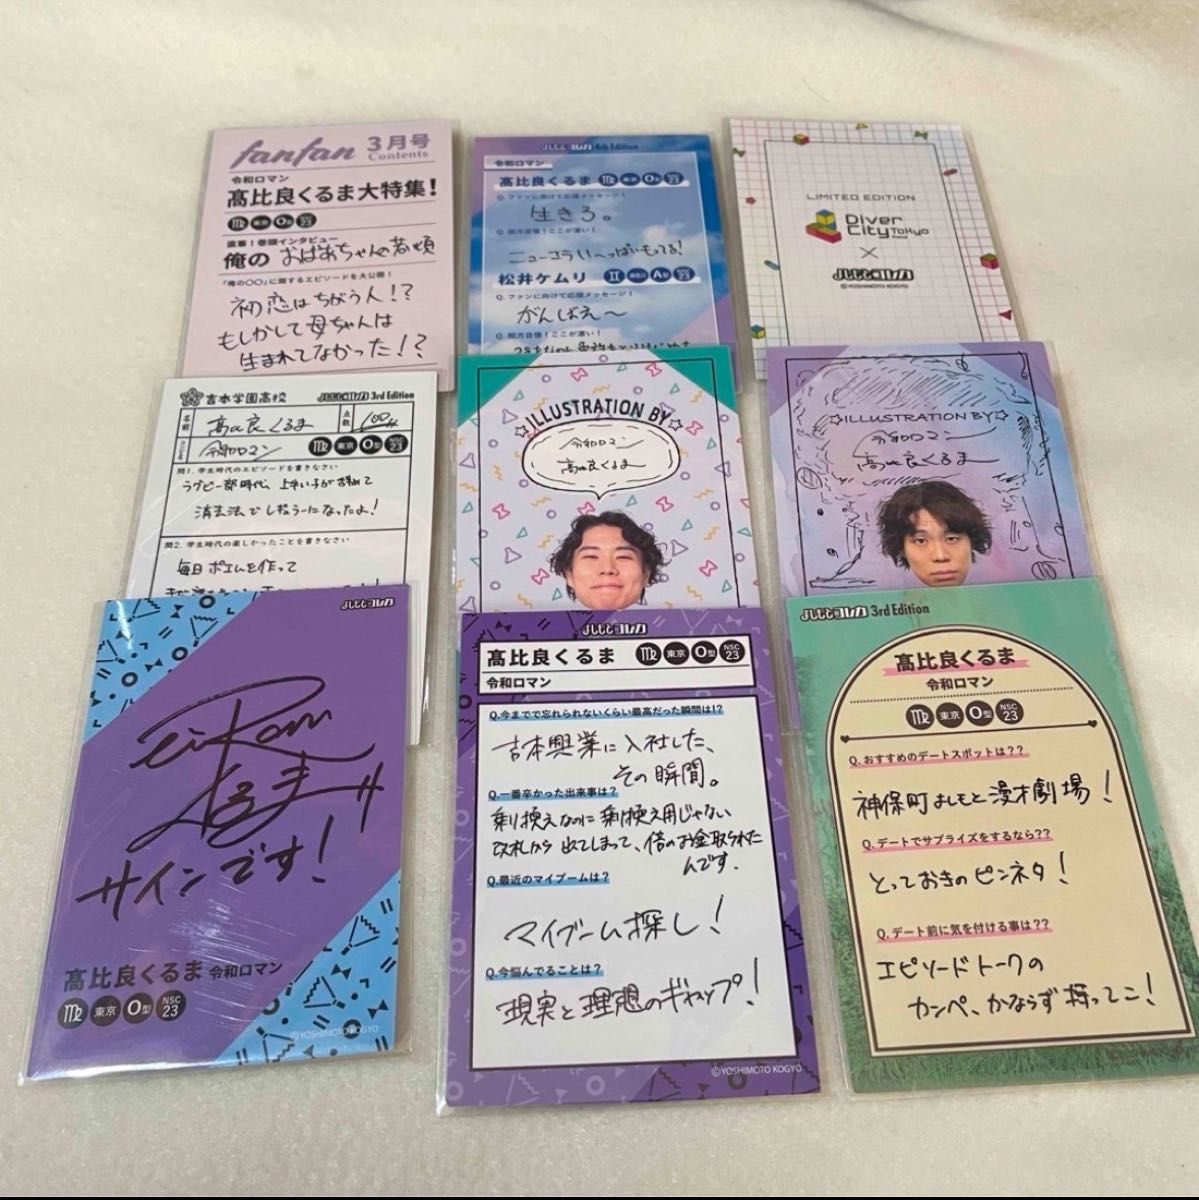 fanfan 3月号
Contents
令和ロマン
髙比良くるま大特集!
東京 O型 NSC 23
直筆!巻頭インタビュー
俺の おばあちゃんの若い頃
「俺の〇〇」に関するエピソードを大公開!
初恋はちがう人!?
もしかして母ちゃんは
生まれてなかった!?
よしもとコレカ 4th Edition
令和ロマン
髙比良くるま 東京 O型 NSC 23
Q. ファンに向けて応援メッセージ!
生きろ。
Q. 相方自慢!ここが凄い!
ニューコライい〜っぱいもってる!
松井ケムリ A型 NSC 23
Q. ファンに向けて応援メッセージ!
がんばえ〜
Q. 相方自慢!ここが凄い!
LIMITED EDITION
Diver City Tokyo
×
よしもとコレカ
©YOSHIMOTO KOGYO
吉本学園高校 よしもとコレカ 3rd Edition
名前 髙比良くるま 点数 100点
令和ロマン 東京 O型 NSC 23
問1. 学生時代のエピソードを書きなさい
ラグビー部時代、上手い子が辞めて
消去法でレギュラーになったよ!
問2. 学生時代の楽しかったことを書きなさい
毎日ポエムを作って
☆ILLUSTRATION BY☆
令和ロマン
髙比良くるま
☆ILLUSTRATION BY☆
令和ロマン
髙比良くるま
よしもとコレカ
くるま
サインです!
髙比良くるま 令和ロマン
東京 O型 NSC 23
©YOSHIMOTO KOGYO
よしもとコレカ
髙比良くるま 東京 O型 NSC 23
令和ロマン
Q.今までで忘れられないくらい最高だった瞬間は!?
吉本興業に入社した、
その瞬間。
Q.一番辛かった出来事は?
乗り換えなのに乗り換え用じゃない
改札から出てしまって、倍のお金取られた
んです。
Q.最近のマイブームは?
マイブーム探し!
Q.今悩んでることは?
現実と理想のギャップ!
©YOSHIMOTO KOGYO
よしもとコレカ 3rd Edition
髙比良くるま
令和ロマン
東京 O型 NSC 23
Q. おすすめのデートスポットは??
神保町よしもと漫才劇場!
Q. デートでサプライズをするなら??
とっておきのピンネタ!
Q. デート前に気を付ける事は??
エピソードトークの
カンペ、かならず持ってこ!